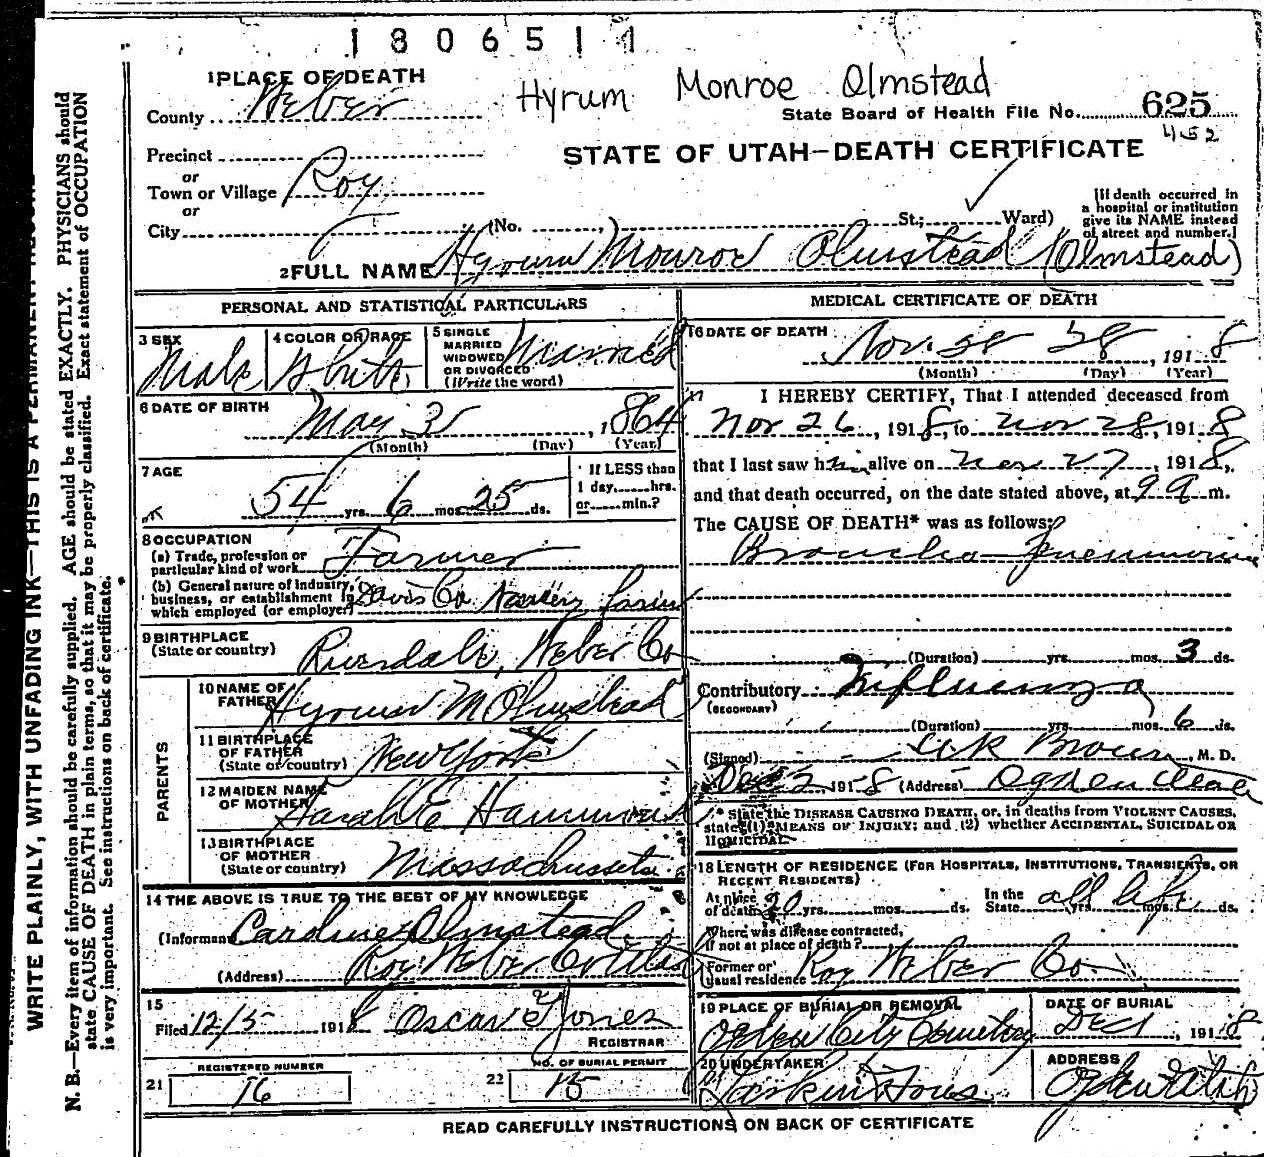 1806511
1 PLACE OF DEATH
Hyrum Monroe Olmstead
County Weber
State Board of Health File No. 625
452
Precinct
STATE OF UTAH—DEATH CERTIFICATE
or
Town or Village Roy
or
City (No. , St.; Ward)
[If death occurred in
a hospital or institution
give its NAME instead
of street and number.]
2 FULL NAME Hyrum Monroe Olmstead (Olmstead)
PERSONAL AND STATISTICAL PARTICULARS
3 SEX
Male
4 COLOR OR RACE
White
5 SINGLE
MARRIED
WIDOWED
OR DIVORCED
(Write the word)
Married
6 DATE OF BIRTH
May 3, 1864
(Month) (Day) (Year)
7 AGE
54 yrs. 6 mos. 25 ds.
If LESS than
1 day, hrs.
or min.?
8 OCCUPATION
(a) Trade, profession or
particular kind of work Farmer
(b) General nature of industry,
business, or establishment in
which employed (or employer) Davis Co
9 BIRTHPLACE
(State or country) Riverdale, Weber Co
PARENTS
10 NAME OF
FATHER Hyrum M Olmstead
11 BIRTHPLACE
OF FATHER
(State or country) New York
12 MAIDEN NAME
OF MOTHER Sarah E
13 BIRTHPLACE
OF MOTHER
(State or country) Massachusetts
14 THE ABOVE IS TRUE TO THE BEST OF MY KNOWLEDGE
(Informant Caroline Olmstead
(Address) Roy Weber Co Utah
15
Filed 12/5 1918 Oscar Jones
REGISTRAR
REGISTERED NUMBER
21 16
NO. OF BURIAL PERMIT
22 15
MEDICAL CERTIFICATE OF DEATH
16 DATE OF DEATH
Nov. 28 28, 1918
(Month) (Day) (Year)
17 I HEREBY CERTIFY, That I attended deceased from
Nov 26, 1918, to Nov 28, 1918
that I last saw him alive on Nov 27, 1918,
and that death occurred, on the date stated above, at 9 a m.
The CAUSE OF DEATH* was as follows:
Broncho-Pneumonia
(Duration) yrs. mos. 3 ds.
Contributory Influenza
(SECONDARY)
(Duration) yrs. mos. 6 ds.
(Signed) Brown, M. D.
Dec 2 1918 (Address) Ogden Utah
* State the DISEASE CAUSING DEATH, or, in deaths from VIOLENT CAUSES,
state (1) MEANS OF INJURY; and (2) whether ACCIDENTAL, SUICIDAL OR
HOMICIDAL.
18 LENGTH OF RESIDENCE (FOR HOSPITALS, INSTITUTIONS, TRANSIENTS, OR
RECENT RESIDENTS)
At place
of death 20 yrs. mos. ds.
In the
State all life yrs. mos. ds.
Where was disease contracted,
if not at place of death?
Former or
usual residence Roy Weber Co.
19 PLACE OF BURIAL OR REMOVAL
Ogden City Cemetery
DATE OF BURIAL
Dec 1, 1918
20 UNDERTAKER
Larkin & Sons
ADDRESS
Ogden Utah
READ CAREFULLY INSTRUCTIONS ON BACK OF CERTIFICATE
WRITE PLAINLY, WITH UNFADING INK—THIS IS A PERMANENT
N. B.—Every item of information should be carefully supplied. AGE should be stated EXACTLY. PHYSICIANS should
state CAUSE OF DEATH in plain terms, so that it may be properly classified. Exact statement of OCCUPATION
is very important. See instructions on back of certificate.